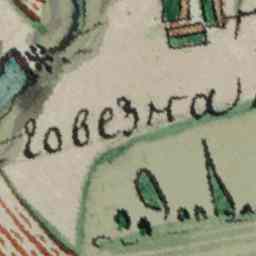 говезна